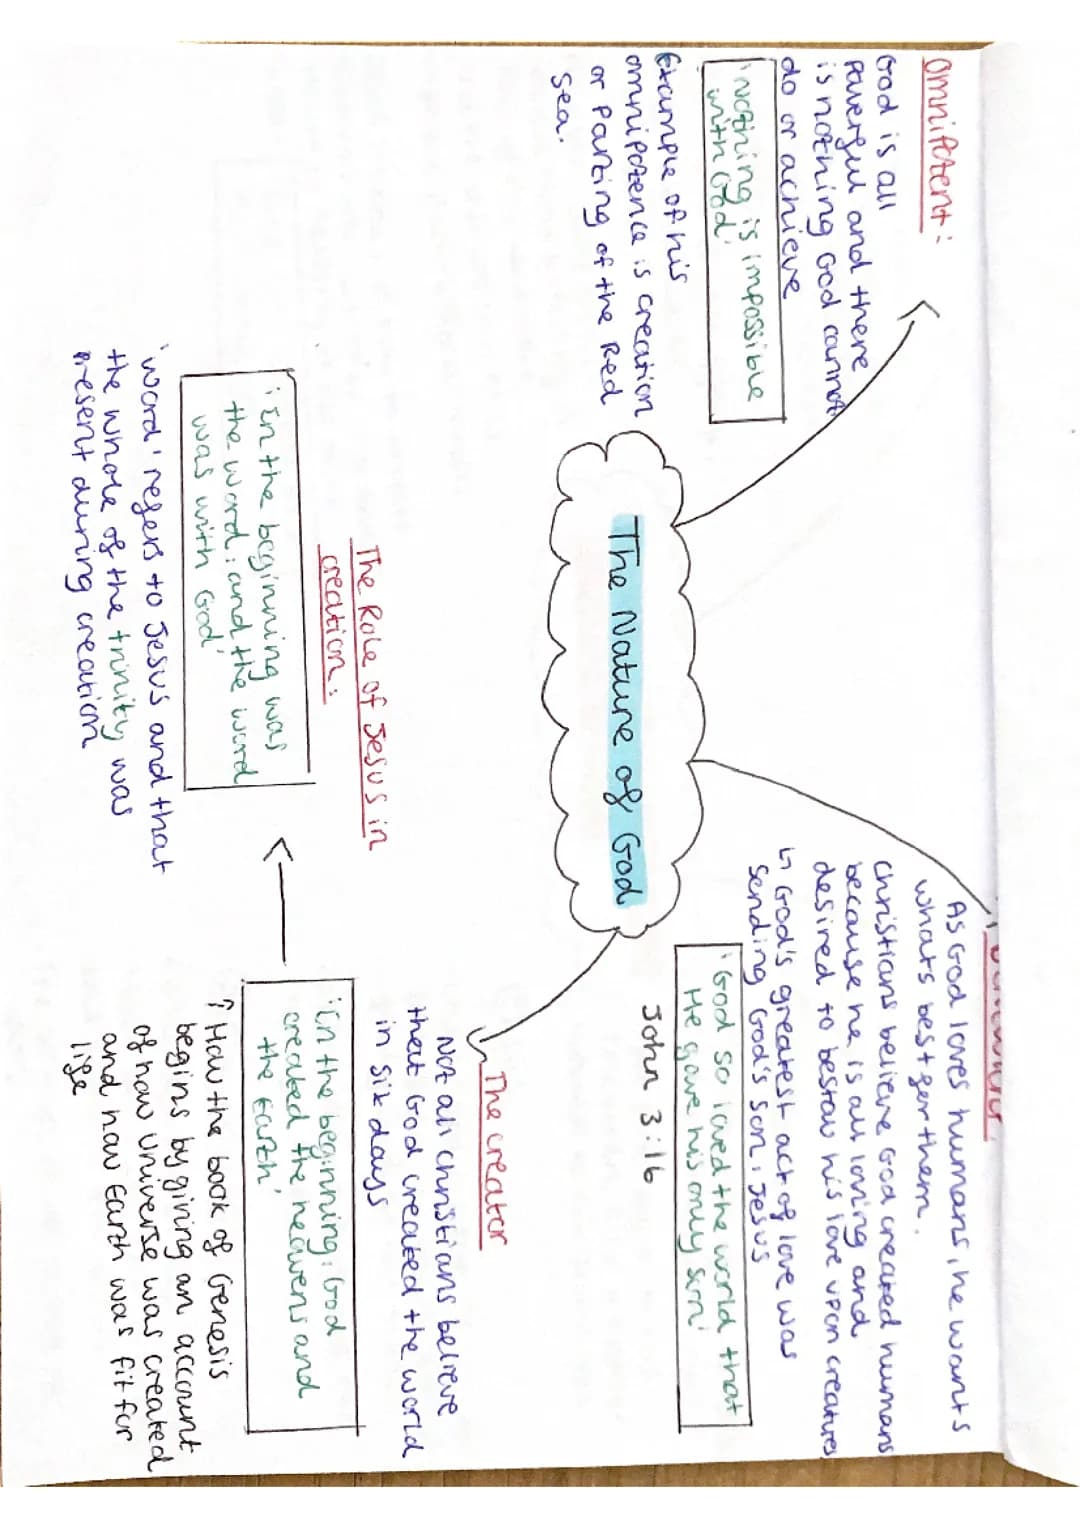 The Nature of God
Omnipotent:
God is all
powerful and there
is nothing God cannot
do or achieve
'Nothing is impossible
with God'
Example of his
omnipotence is creation
or Parting of the Red
Sea.
As God loves humans, he wants
whats best for them.
Christians believe God created humans
because he is all loving and
desired to bestow his love upon creatures
↳ God's greatest act of love was
sending God's son, Jesus
'God so loved the world that
He gave his only son'
John 3:16
The creator
Not all christians believe
that God created the world
in six days
'In the beginning, God
created the heavens and
the Earth'
↑ How the book of Genesis
begins by giving an account
of how universe was created
and how Earth was fit for
life
The Role of Jesus in
creation:
'In the beginning was
the word, and the word
was with God'
'word' refers to Jesus and that
the whole of the trinity was
present during creation